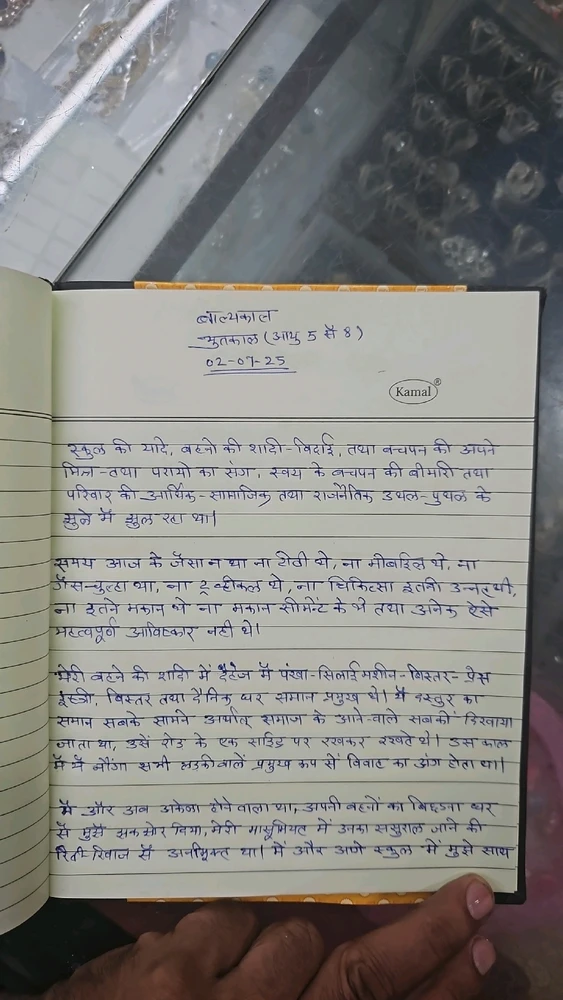 बाल्यकाल
भुतकाल (आयु 5 सें 8)
02-07-25
Kamal®
स्कुल की यादे, बहनो की शादी-विदाई, तथा बचपन की अपने
मित्र-तथा परायो का संग, स्वय के बचपन की बीमारी तथा
परिवार की आर्थिक-सामाजिक तथा राजनैतिक उथल-पुथल के
झुले में झुल रहा था।
समय आज के जैसा न था ना टीवी थे, ना मोबाईल थे, ना
गैस-चुल्हा था, ना टू व्हीकल थे, ना चिकित्सा इतनी उन्नत थी,
ना इतने मकान थे ना मकान सीमेंट के थे तथा अनेक ऐसे
महत्वपूर्ण आविष्कार नही थे।
मेरी बहने की शादि में दैहेज में पंखा-सिलाई मशीन-बिस्तर-प्रेस
ईस्त्री, बिस्तर तथा दैनिक घर समान प्रमुख थे। ये दस्तुर का
समान सबके सामने अर्थात् समाज के आने-वाले सबको दिखाया
जाता था, उसें रोड के एक साईड पर रखकर रखते थे। उस काल
में ये सभी लडकीवाले प्रमुख रूप सें विवाह का अंग होता था।
मै और अब अकेला होने वाला था, अपनी बहनों का बिछडना घर
सें मुझें झकझोर दिया, मेरी मासुमियत में उनका ससुराल जाने की
रिती-रिवाज सें अनभिक्त था। में और आगे स्कुल में मुझे साथ